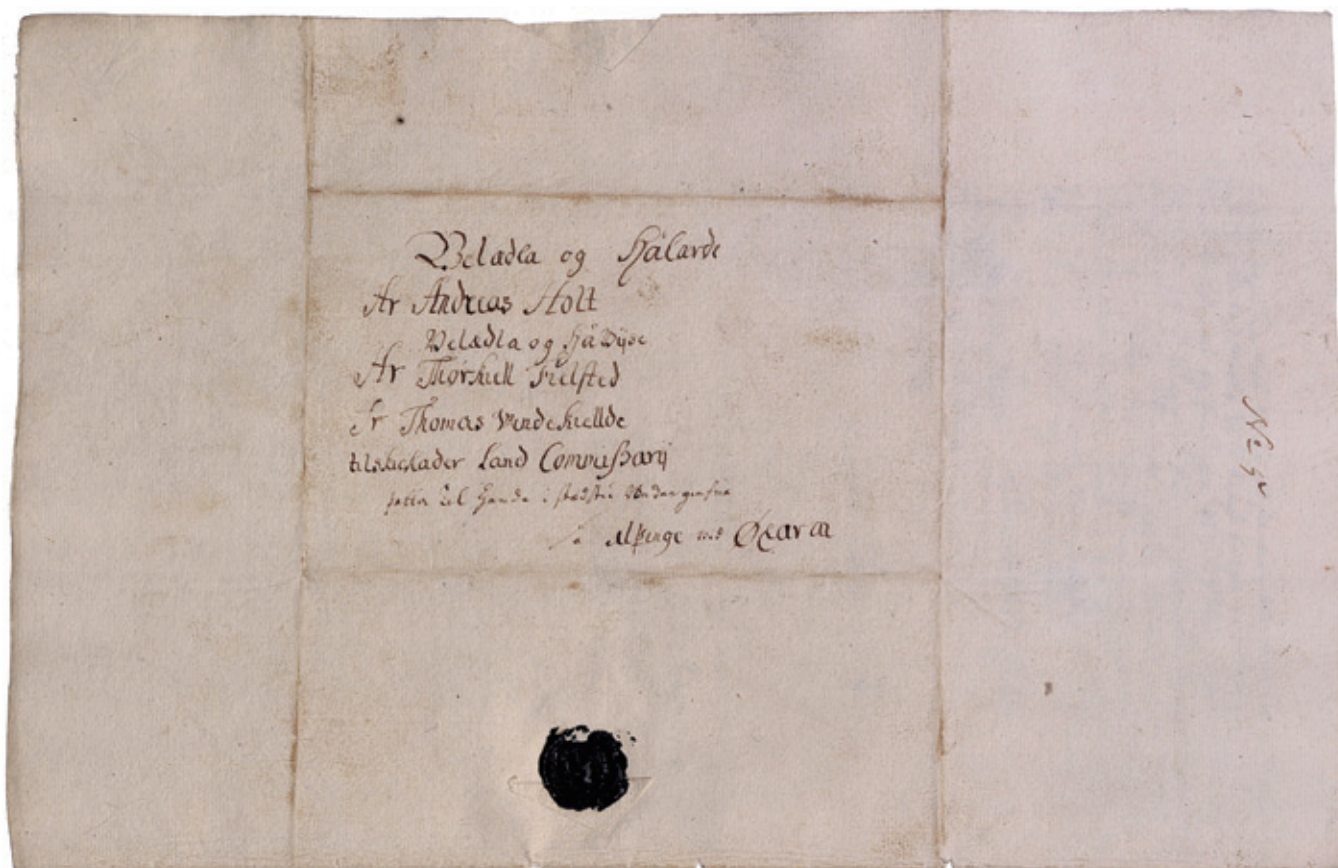 Velædla og Hálærde
Hr Andreas Holt
Velædla og Há Vÿse
Hr Thorkiell Fielsted
Hr Thomas Windekiellde
tilskickader Land Commissarij
þetta til Handa i
á Alþinge við Øxar aa
No